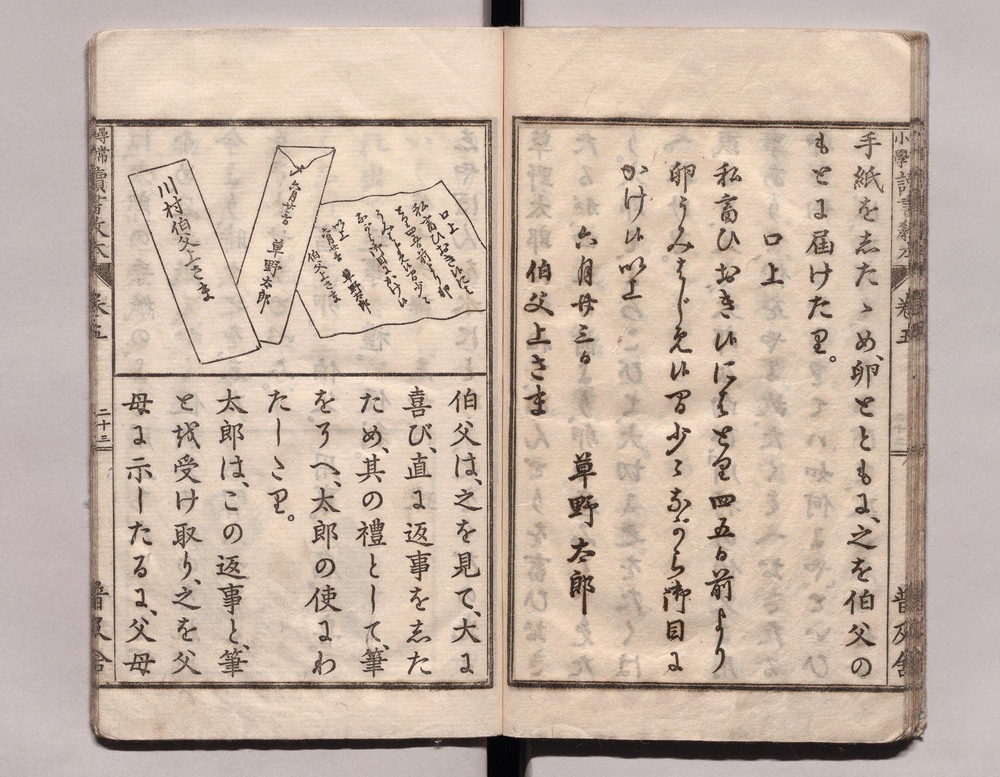 小學讀書教本
卷五
普及舍
手紙を志たゝめ、卵とともに、之を伯父の
もとに届けたり。
口上
私畜ひおき候にはとり四五日前より
卵うみはじめ候間少々ながら御目に
かけ候以上
六月廿三日 草野太郎
伯父上さま
口上
私畜ひおき候には
とり四五日前より卵
うみはじめ候間少々
ながら御目にかけ候
以上
六月廿三日 草野太郎
伯父上さま
〆 六月廿三日 草野太郎
川村伯父上さま
伯父は、之を見て、大に
喜び、直に返事を志た
ため、其の禮として、筆
をそへ、太郎の使にわ
たしたり。
太郎は、この返事と、筆
とを受け取り、之を父
母に示したるに、父母
尋常讀書教本
卷五
二十三
普及舍